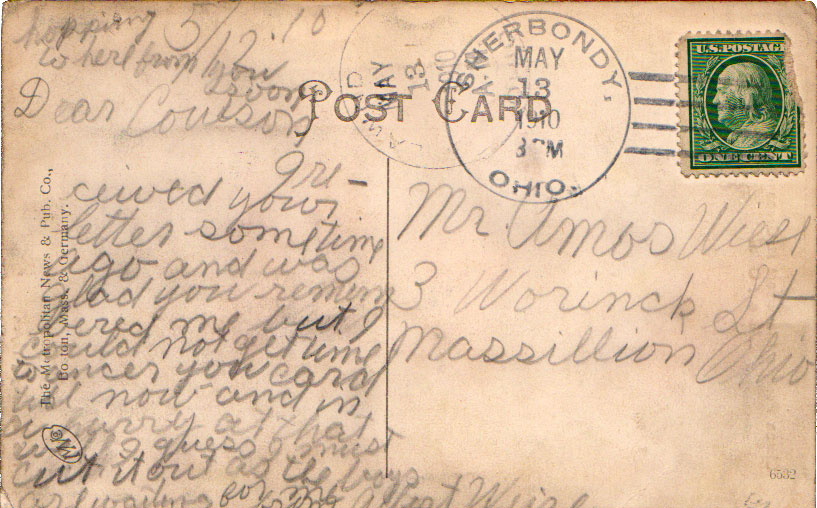 hopping 5/12/10
to herl from you
soon
Dear Couison
I re-
cieved your
letter sometime
ago and was
glad you remim
bered me but I
could not get time
to ancer you card
till now and in
a hurry at that
well I guess I must
cut it out as the boys
are waiting for me
from Albert Wise
POST CARD
MAY
13
1910
SHERBONDY,
MAY
13
1910
3 PM
OHIO.
U.S. POSTAGE
ONE CENT
Mr. Amos Wise
3 Worinck St
Massillion Ohio
The Metropolitan News & Pub. Co.,
Boston, Mass. & Germany.
6532